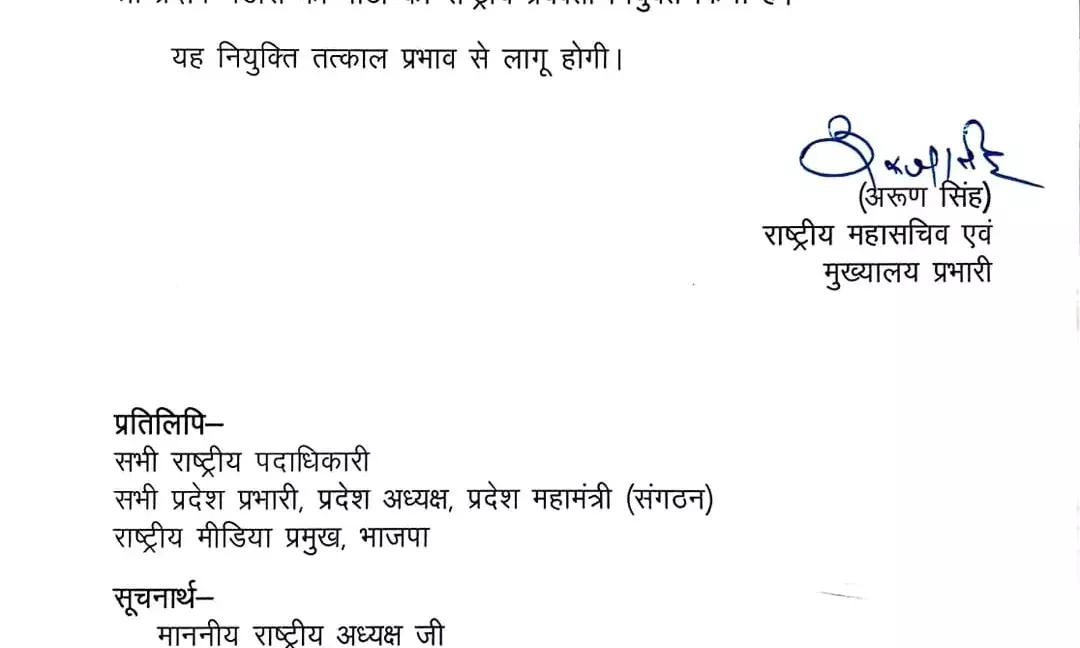 यह नियुक्ति तत्काल प्रभाव से लागू होगी।
(अरूण सिंह)
राष्ट्रीय महासचिव एवं
मुख्यालय प्रभारी
प्रतिलिपि–
सभी राष्ट्रीय पदाधिकारी
सभी प्रदेश प्रभारी, प्रदेश अध्यक्ष, प्रदेश महामंत्री (संगठन)
राष्ट्रीय मीडिया प्रमुख, भाजपा
सूचनार्थ–
माननीय राष्ट्रीय अध्यक्ष जी